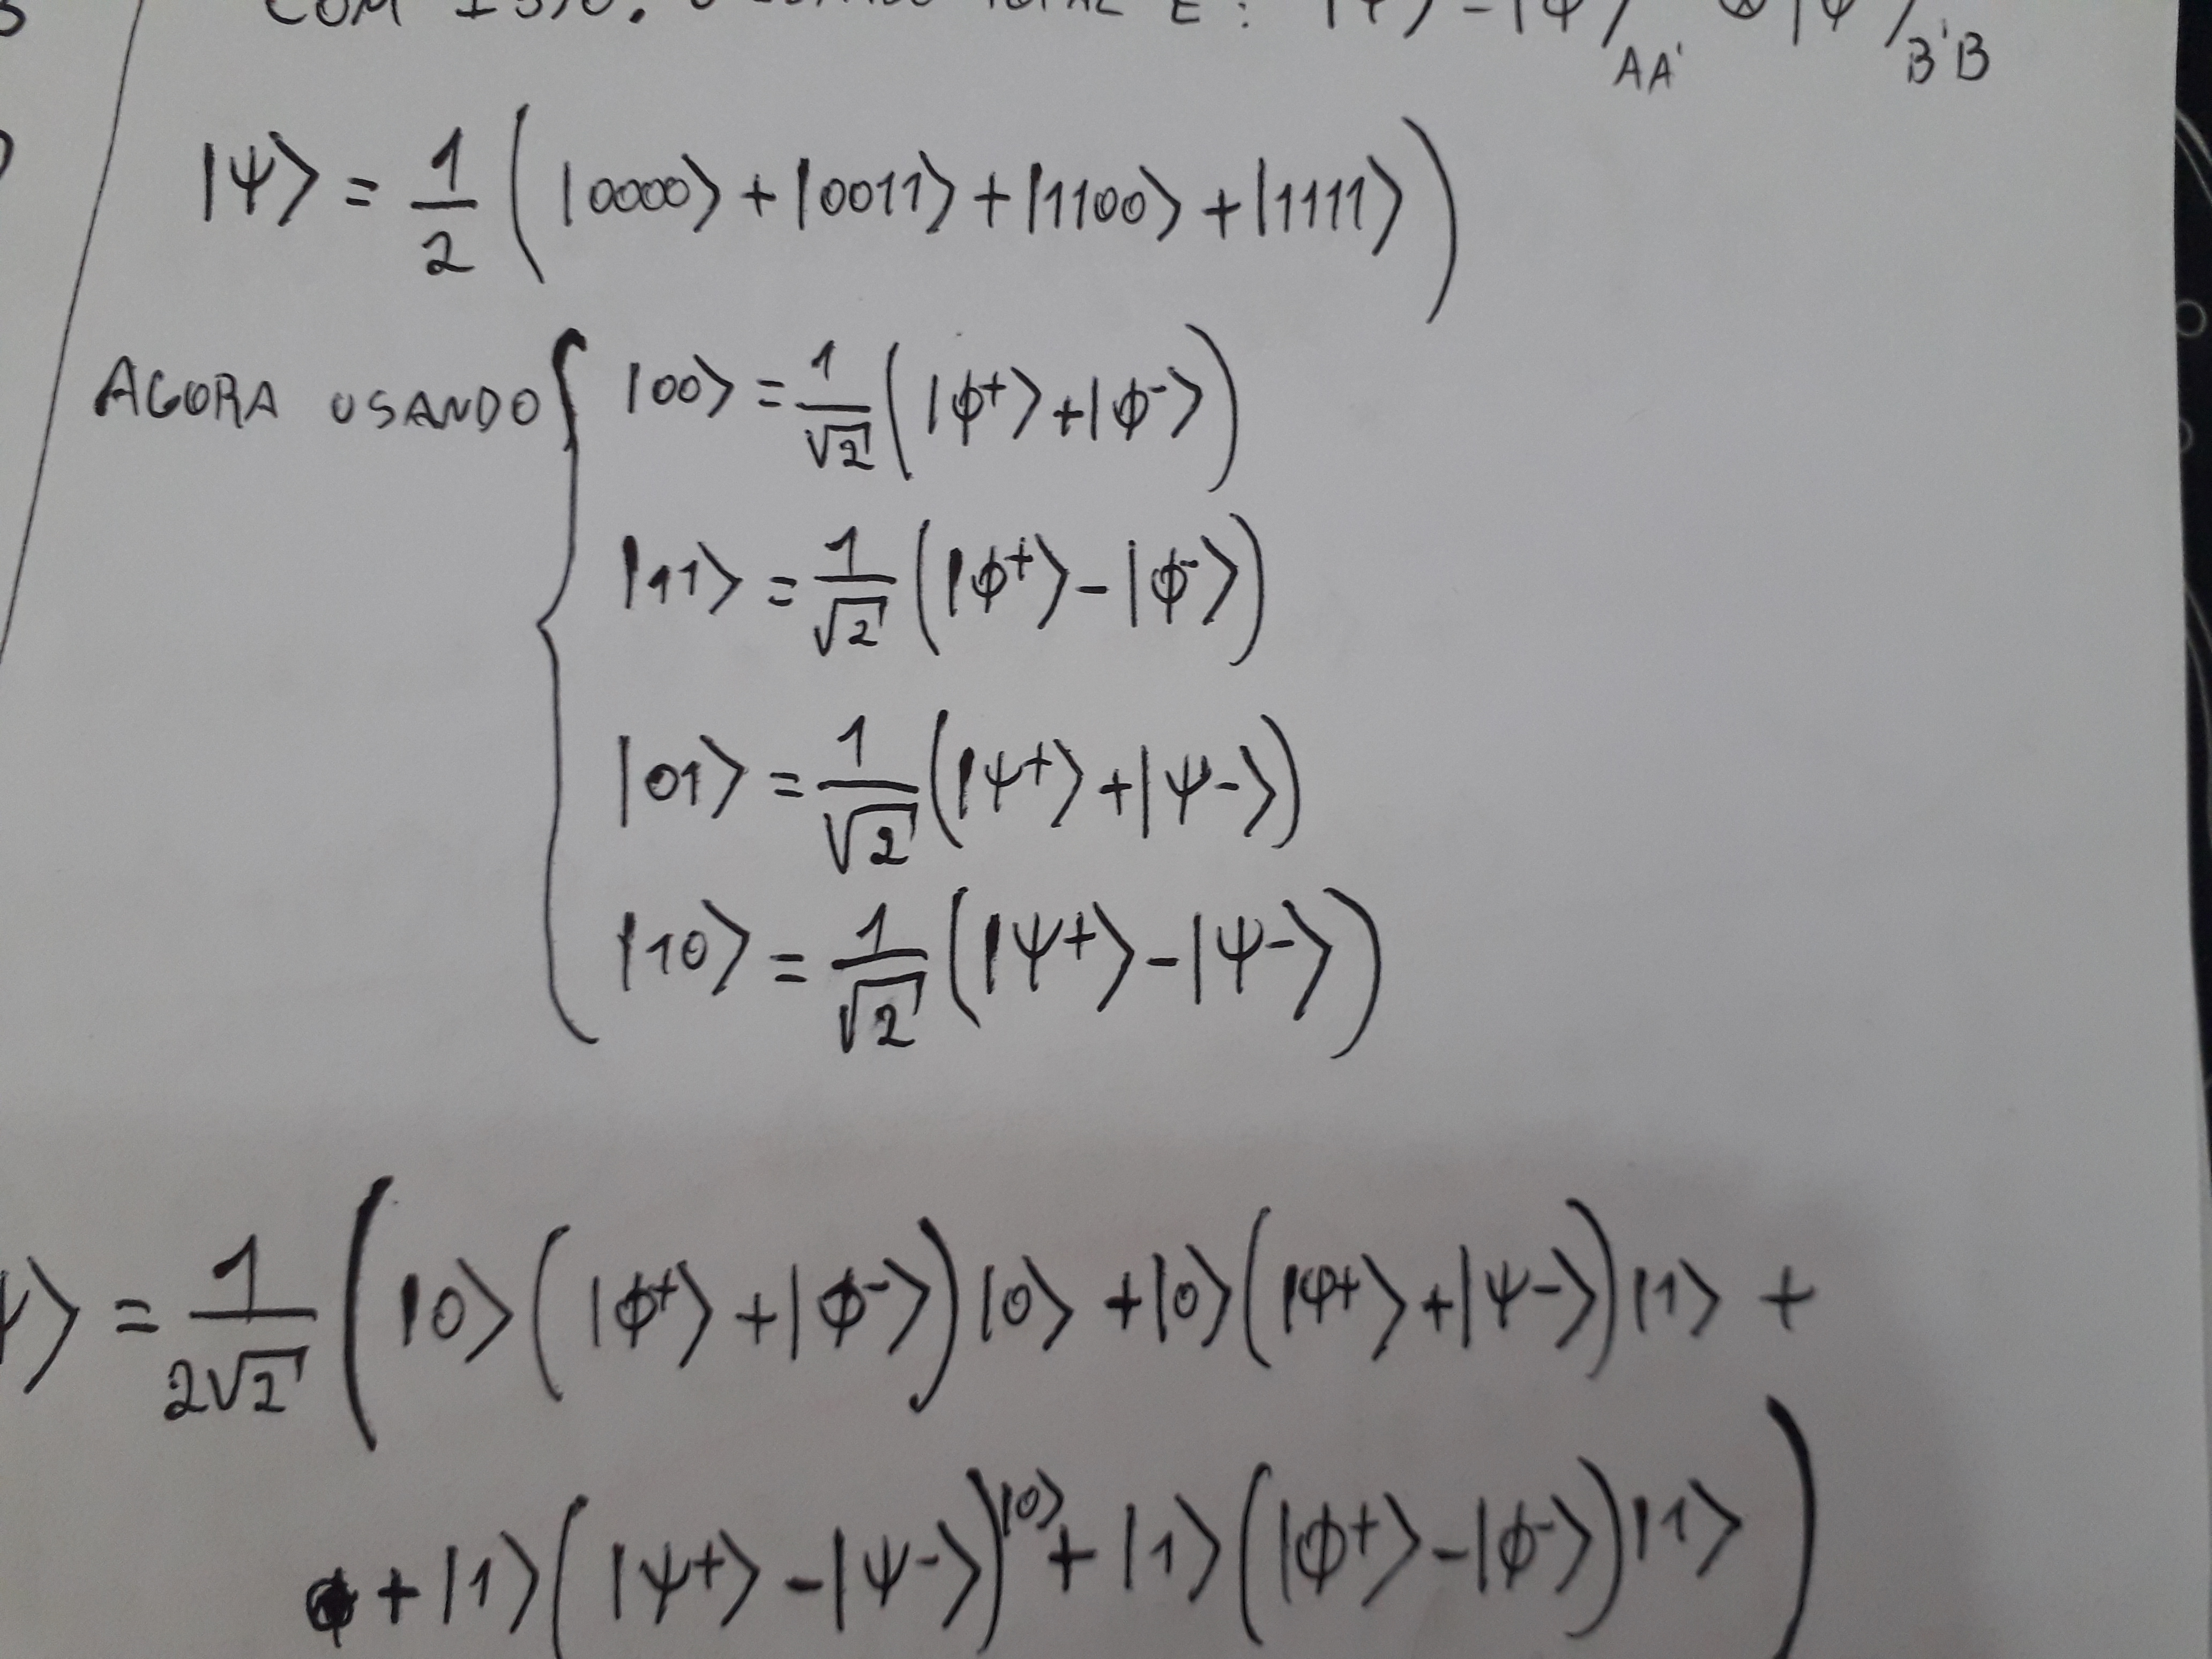 COM ISSO, O ESTADO TOTAL É: |Ψ> = |φ>AA' ⊗ |φ>B'B
|Ψ> = 1/2 (|0000> + |0011> + |1100> + |1111>)
AGORA USANDO { |00> = 1/√2 (|ϕ+> + |ϕ->)
|11> = 1/√2 (|ϕ+> - |ϕ->)
|01> = 1/√2 (|Ψ+> + |Ψ->)
|10> = 1/√2 (|Ψ+> - |Ψ->)
> = 1/2√2 (|0>(|ϕ+> + |ϕ->)|0> + |0>(|Ψ+> + |Ψ->)|1> +
+ |1>(|Ψ+> - |Ψ->)|0> + |1>(|ϕ+> - |ϕ->)|1>)